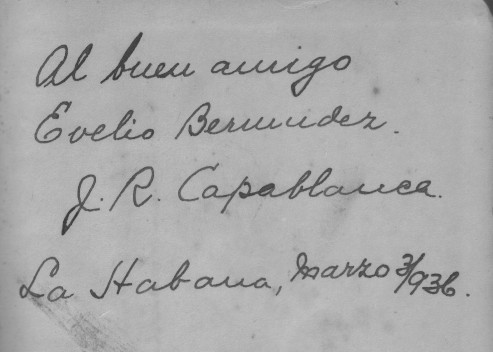 Al buen amigo
Evelio Bermudez.
J. R. Capablanca.
La Habana, Marzo 3/936.